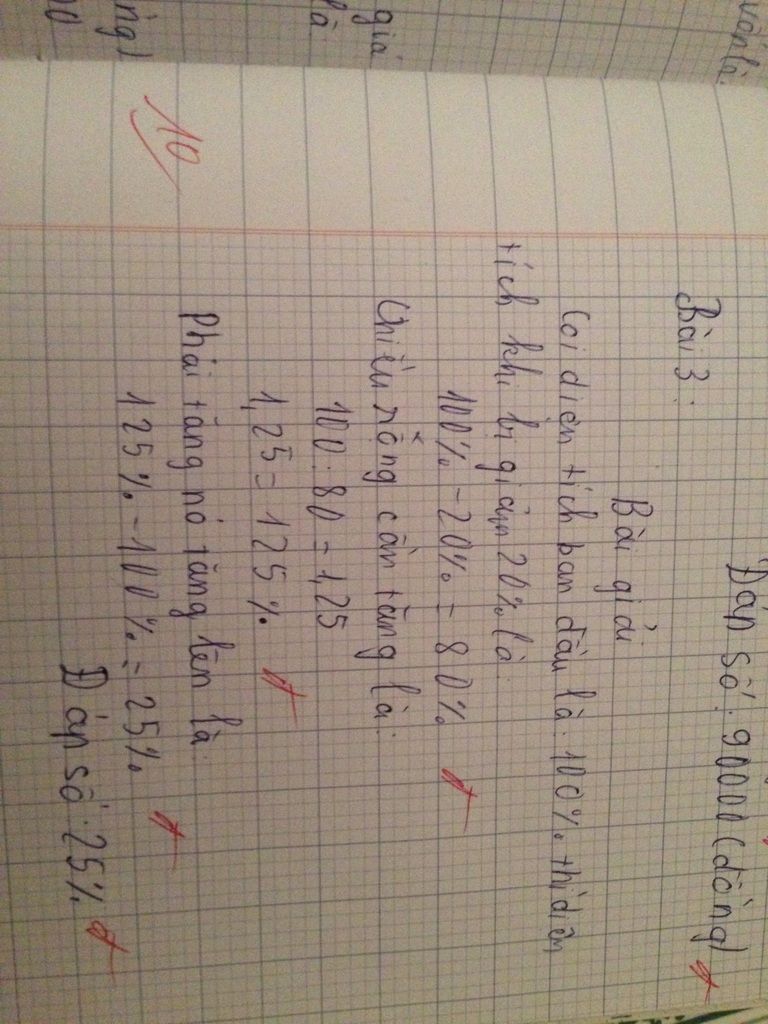 văn là
giá
là
ng)
00
Đáp số: 90000 (đồng)
Bài 3:
Bài giải
Coi diện tích ban đầu là: 100% thì diện
tích khi bị giảm 20% là
100% - 20% = 80%
Chiều rộng cần tăng là:
100 : 80 = 1,25
1,25 = 125%
Phải tăng nó tăng lên là
125% - 100% = 25%
Đáp số: 25%
10